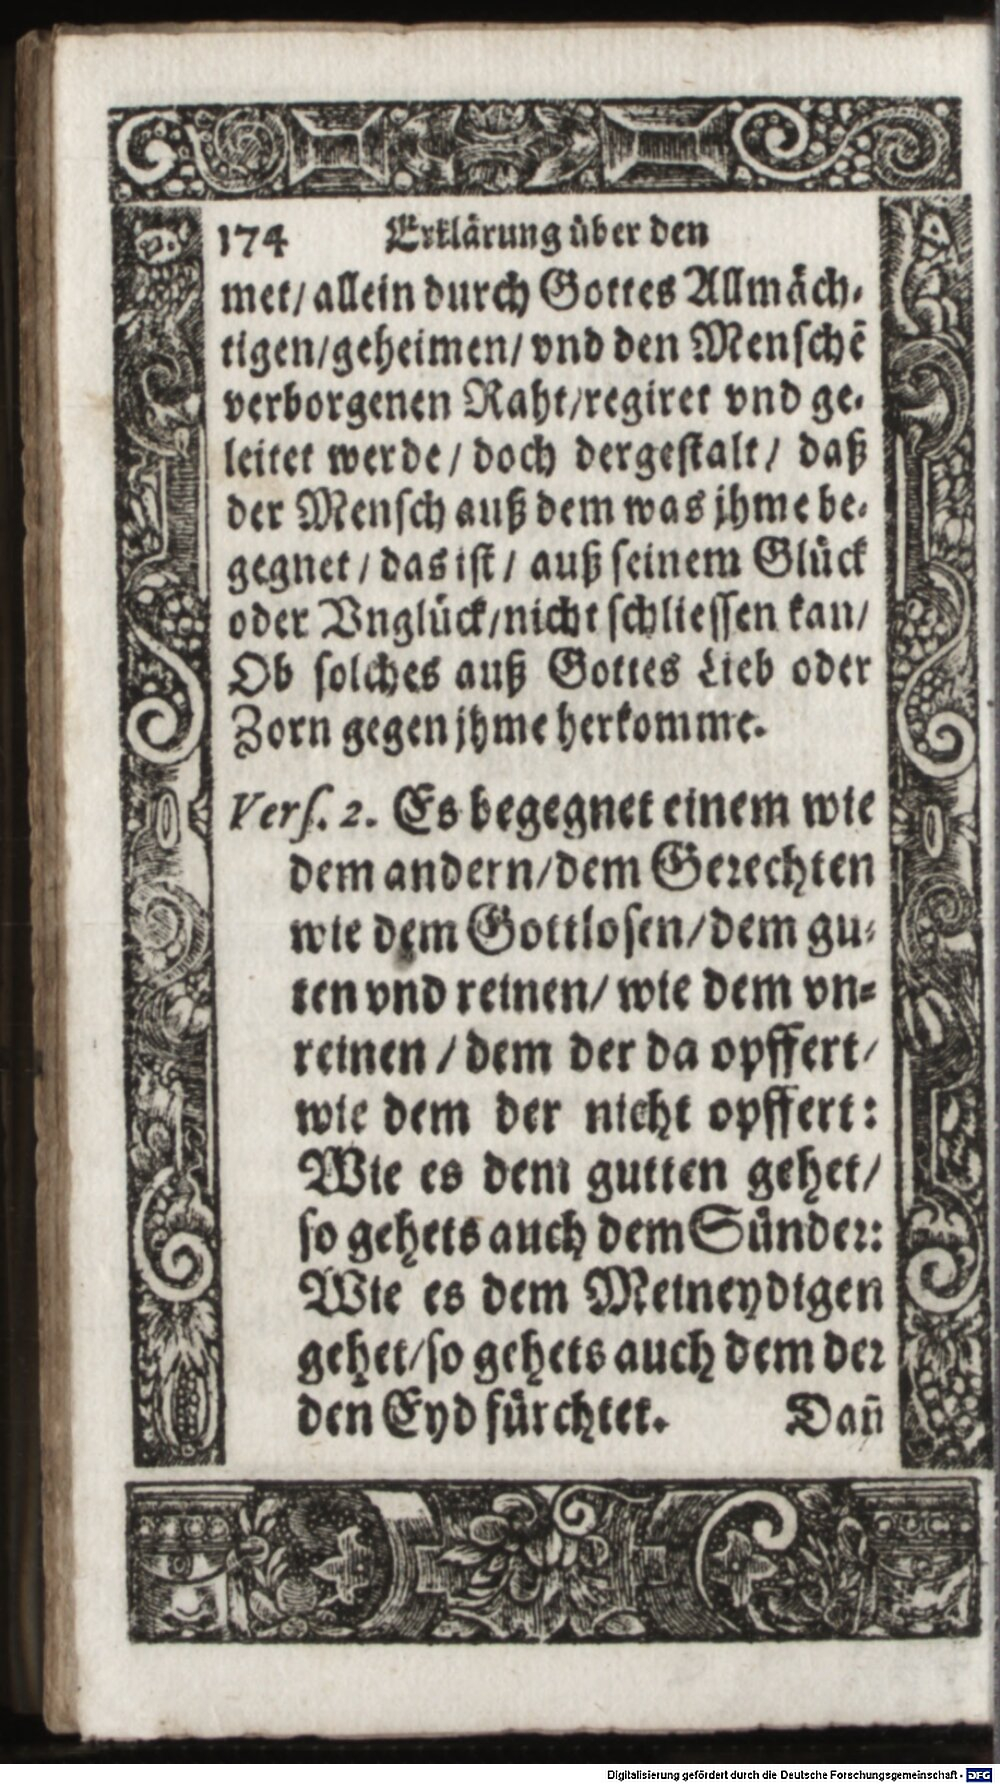 174 Erklärung über den
met/ allein durch Gottes Allmäch-
tigen/geheimen/ vnd den Menschẽ
verborgenen Raht/regiret vnd ge-
leitet werde/ doch dergestalt/ daß
der Mensch auß dem was jhme be-
gegnet/ das ist/ auß seinem Glück
oder Vnglück/nicht schliessen kan/
Ob solches auß Gottes Lieb oder
Zorn gegen jhme herkomme.
Vers. 2. Es begegnet einem wie
dem andern/dem Gerechten
wie dem Gottlosen/dem gu-
ten vnd reinen/ wie dem vn-
reinen / dem der da opffert/
wie dem der nicht opffert:
Wie es dem gutten gehet/
so gehets auch dem Sünder:
Wie es dem Meineydigen
gehet/so gehets auch dem der
den Eyd fürchtet. Dañ
Digitalisierung gefördert durch die Deutsche Forschungsgemeinschaft - DFG